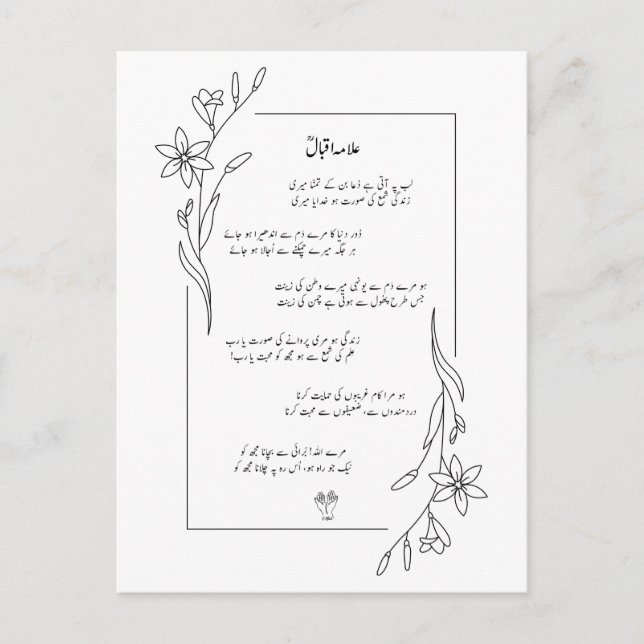 علامہ اقبالؒ
لب پہ آتی ہے دُعا بن کے تمنّا میری
زندگی شمع کی صورت ہو خدایا میری
دُور دنیا کا مرے دَم سے اندھیرا ہو جائے
ہر جگہ میرے چمکنے سے اُجالا ہو جائے
ہو مرے دَم سے یونہی میرے وطن کی زینت
جس طرح پھُول سے ہوتی ہے چمن کی زینت
زندگی ہو مری پروانے کی صورت یا رب
عِلم کی شمع سے ہو مجھ کو محبت یا رب!
ہو مرا کام غریبوں کی حمایت کرنا
دردمندوں سے، ضعیفوں سے محبت کرنا
مرے اللہ! بُرائی سے بچانا مجھ کو
نیک جو راہ ہو، اُس رہ پہ چلانا مجھ کو